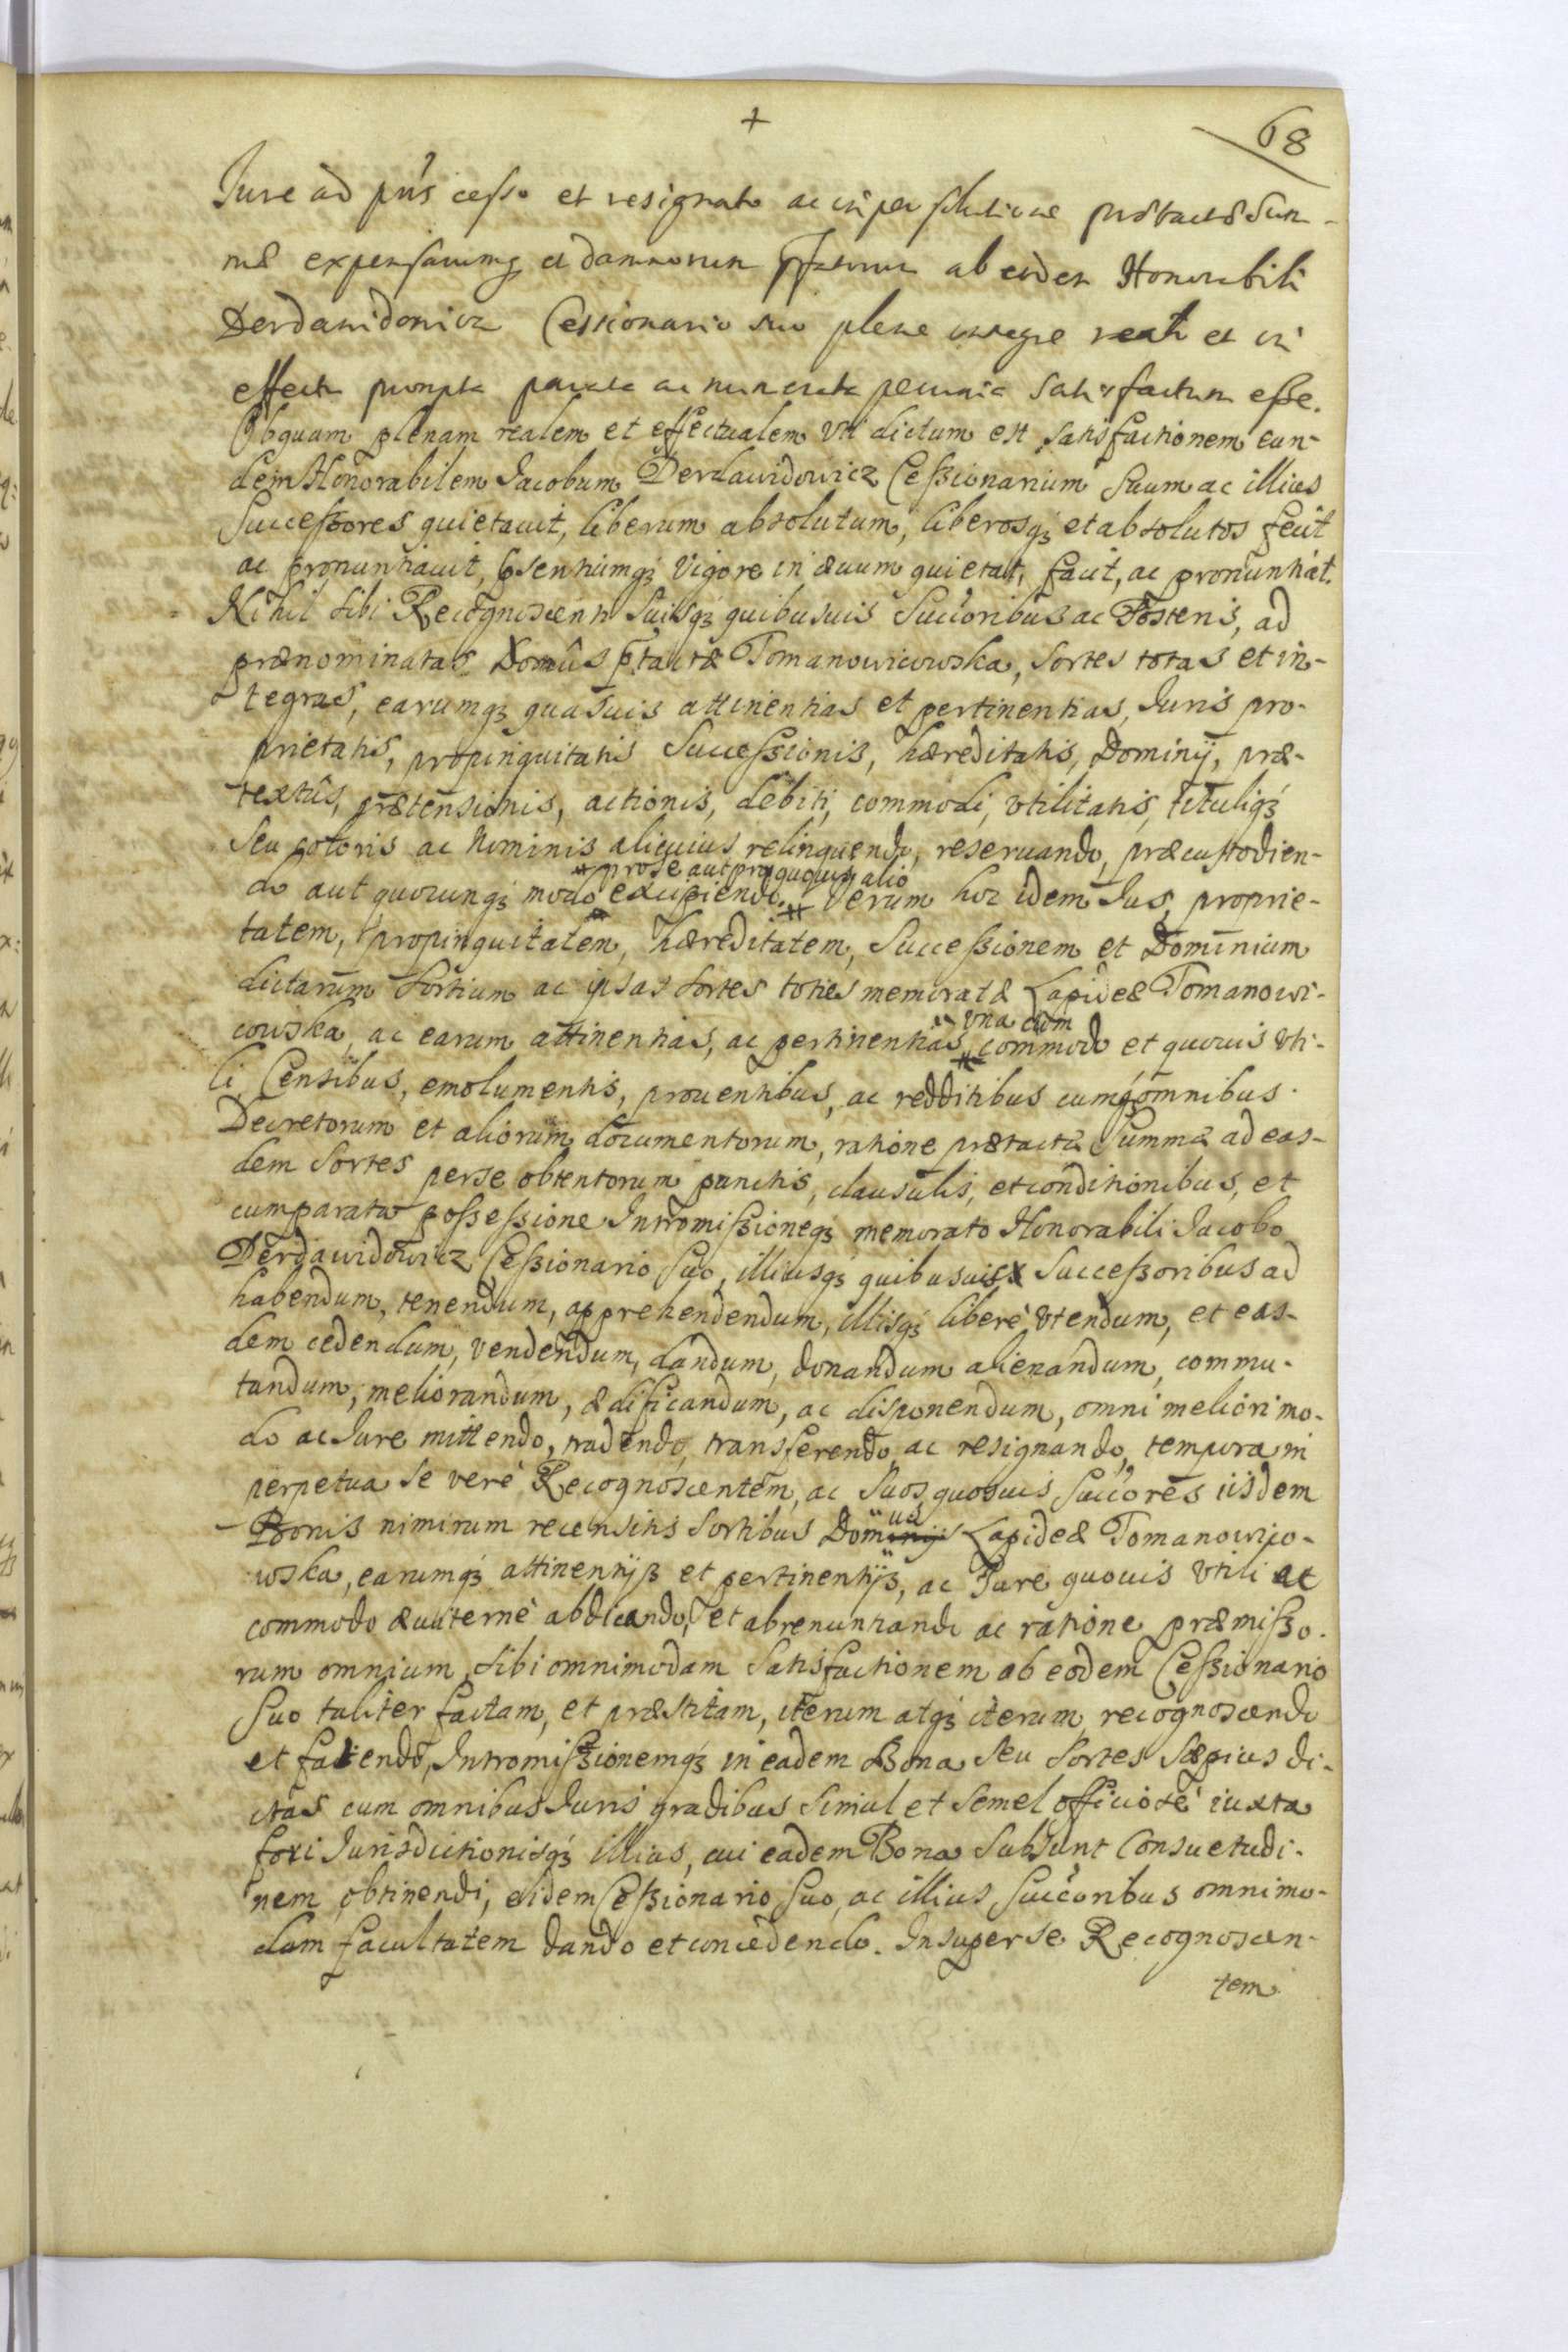 +
68
Jure ad pñs cesso et resignato ac in persolutione prætactæ Sum-
mæ expensarumq et damnorum ab eodem Honorabili
Derdawidowicz Cessionario suo plene integre realr et in
effectu prompta parata ac numerata pecunia satisfactum esse.
Obquam plenam realem et effectualem vti dictum est satisfactionem eun-
dem Honorabilem Jacobum Derdawidowicz Ceßionarium Suum ac illius
Succeßores quietauit, liberum absolutum, liberosqʒ et absolutos fecit
ac pronuntiauit, pñsentiumqʒ vigore in æuum quietat, facit, ac pronuntiat.
Nihil sibi Recognoscenti Suisqʒ quibusuis Succoribus ac Posteris, ad
prænominatas Domûs ptactæ Tomanowicowska, Sortes totas et in-
tegras, earumqʒ quasuis attinentias et pertinentias, Juris pro-
prietatis, propinquitatis Succeßionis, hæreditatis, Dominij, præ-
textûs, prætensionis, actionis, debiti, commodi, vtilitatis, tituliqʒ
Seu coloris ac Nominis alicuius relinquendo, reseruando, præcustodien-
# pro se aut pro quouis alio
do aut quocunqʒ modo excipiendo. # Verum hoc idem Jus, proprie-
tatem, propinquitatem, hæreditatem, Succeßionem et Dominium
dictarum Sortium ac ipsas Sortes toties memoratæ Lapideæ Tomanowi-
vna cum
cowska, ac earum attinentias, ac pertinentias # commodo et quouis vti-
li Censibus, emolumentis, prouentibus, ac redditibus cumqʒ omnibus
Decretorum et aliorum documentorum, ratione prætactæ Summæ ad eas-
dem Sortes per se obtentorum punctis, clausulis, et conditionibus, et
cum parata poßeßione Intromißioneqʒ memorato Honorabili Jacobo
Derdawidowicz Ceßionario Suo, illiusqʒ quibusuis Succeßoribus ad
habendum, tenendum, apprehendendum, illisqʒ liberè vtendum, et eas-
dem cedendum, vendendum, dandum, donandum alienandum, commu-
tandum, meliorandum, ædificandum, ac disponendum, omni meliori mo-
do ac Jure mittendo, tradendo, transferendo ac resignando, tempora in
perpetua se verè Recognoscentem, ac Suos quosuis Succores iisdem
us
Bonis nimirum recensitis Sortibus Dominij Lapideæ Tomanowico-
wska, earumqʒ attinentijs et pertinentijs, ac Jure quouis vtili ac
commodo æuiternè abdicando, et abrenuntiando ac ratione præmißo-
rum omnium sibi omnimodam Satisfactionem ab eodem Ceßionario
Suo taliter factam, et præstitam, iterum atqʒ iterum recognoscendo
et fatendo, Intromißionemqʒ in eadem Bona Seu Sortes Sæpius di-
ctas cum omnibus Juris gradibus Simul et Semel officiosè iuxta
fori Jurisdictionisqʒ illius, cui eadem Bona Subsunt Consuetudi-
nem obtinendi, eidem Ceßionario Suo, ac illius Succoribus omnimo-
dam facultatem dando et concedendo. Insuper se Recognoscen-
tem